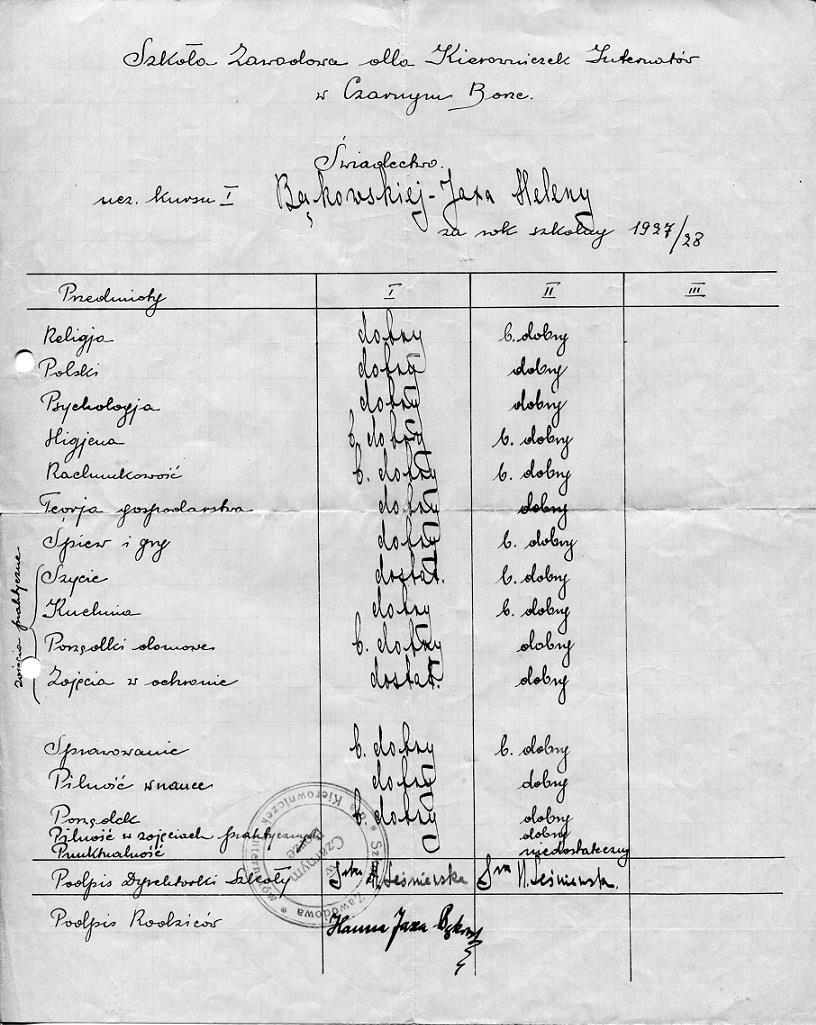 Szkoła Zawodowa dla Kierowniczek Internatów
w Czarnym Borze.
Świadectwo.
ucz. kursu I Bąkowskiej-Jaxa Heleny
za rok szkolny 1927/28
Przedmioty I II III
Religja dobry b. dobry
Polski dobry dobry
Psychologja dobry dobry
Higjena b. dobry b. dobry
Rachunkowość b. dobry b. dobry
Teorja gospodarstwa dobry dobry
Śpiew i gry dobry b. dobry
zajęcia praktyczne
Szycie dostat. b. dobry
Kuchnia dobry b. dobry
Porządki domowe b. dobry dobry
Zajęcia w ochronie dostat. dobry
Sprawowanie b. dobry b. dobry
Pilność w nauce dobry dobry
Porządek b. dobry dobry
Pilność w zajęciach praktycznych dobry
Punktualność niedostateczny
Podpis Dyrektorki Szkoły Leśniewska Leśniewska.
Podpis Rodziców Hanna Jaxa Bąkows
* Szkoła Zawodowa * dla Kierowniczek Internatów
w Czarnym Borze